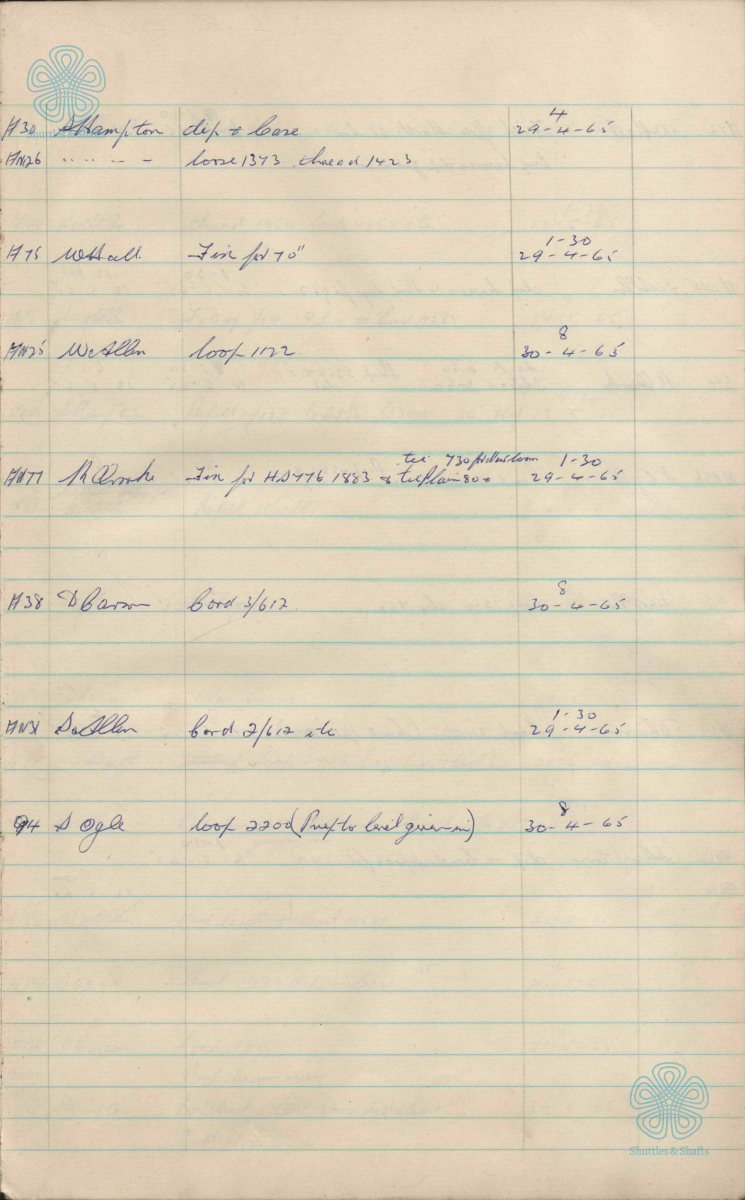 A30 S Hampton dip & Case 4
29-4-65
AN26 " " " " loose 1373 thread 1423
A75 W Hall Fix for 70" 1-30
29-4-65
AN25 W Allen loop 1122 8
30-4-65
for 1-30
AN77 R Fix for 1883 & 29-4-65
A38 D Carson Cord 3/612 8
30-4-65
AN31 S Allen Cord 2/612 etc 1-30
29-4-65
94 S Ogle loop 220d (Prep to level given in) 8
30-4-65
Shuttles & Shafts